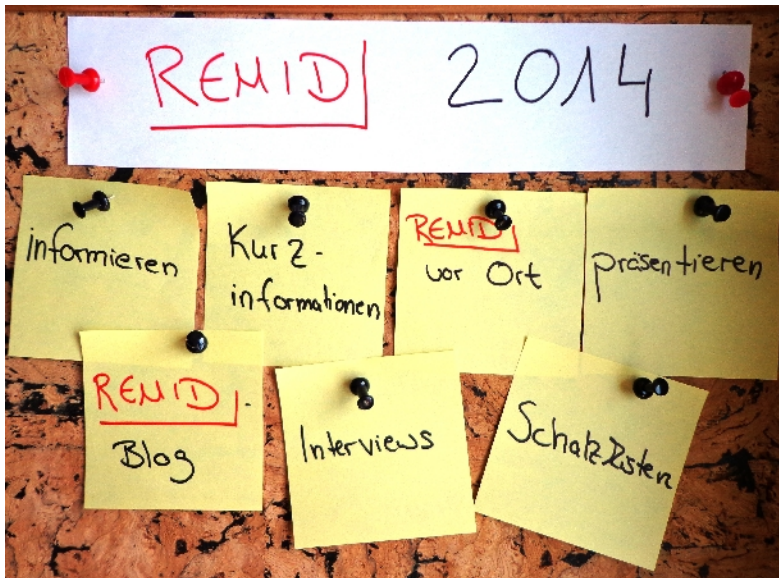 REMID 2014
informieren
Kurz-
informationen
REMID
vor Ort
präsentieren
REMID-
Blog
Interviews
Schatzkisten